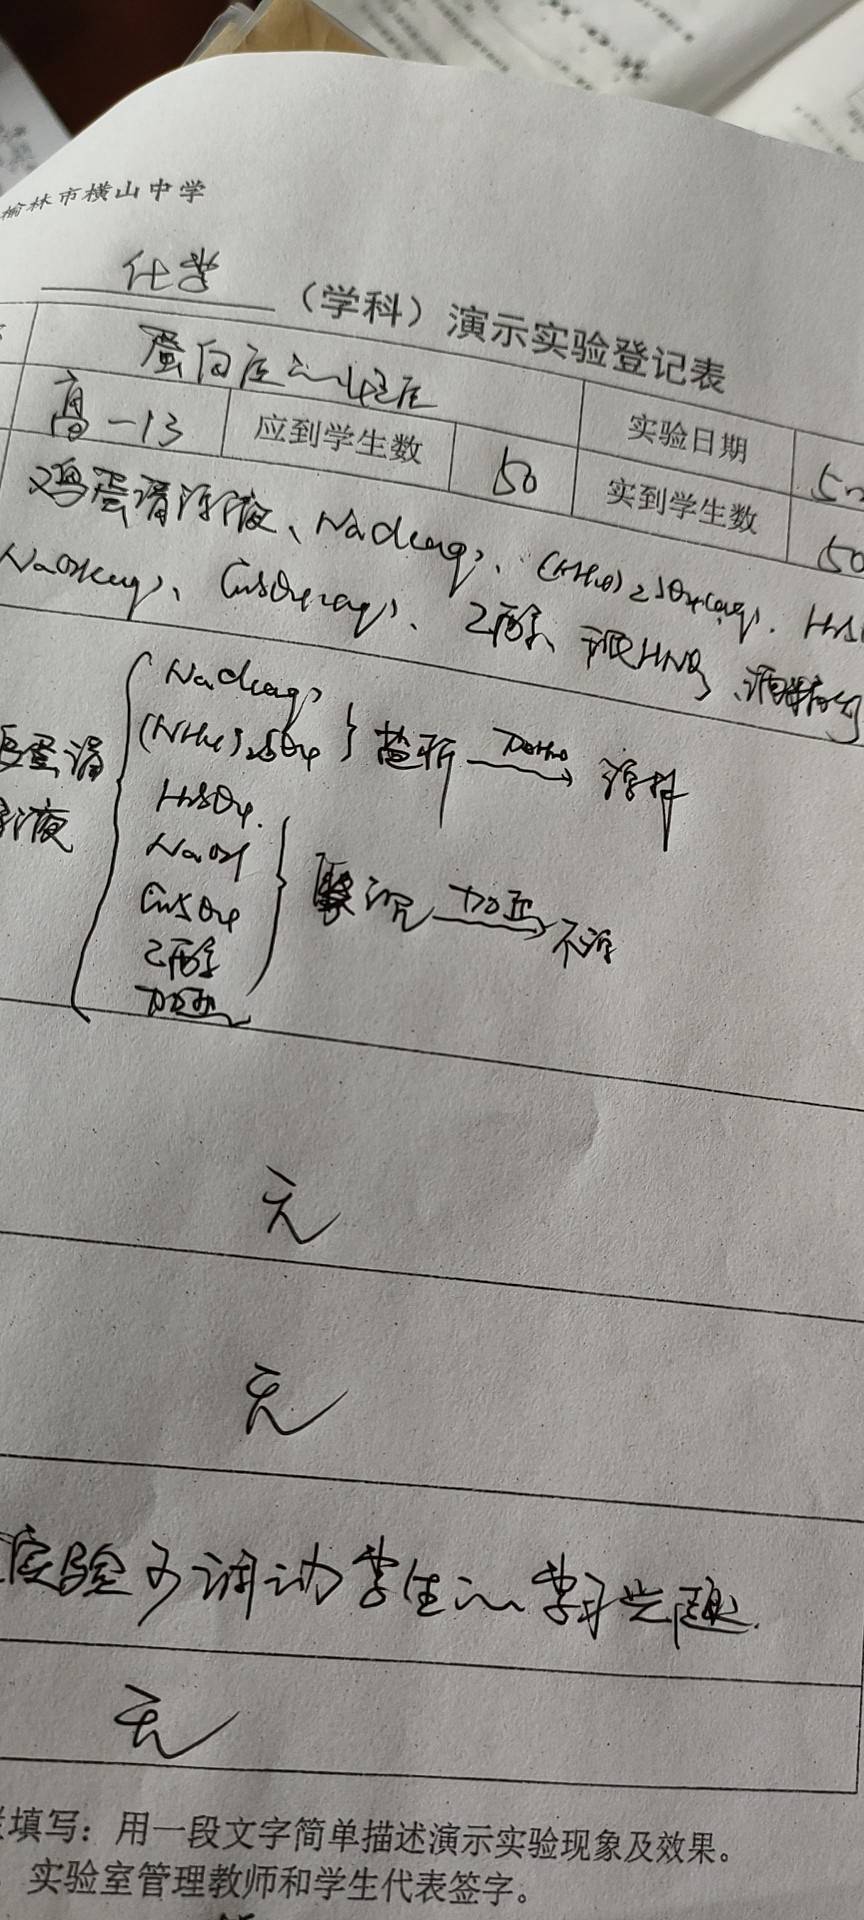 榆林市横山中学
化学（学科）演示实验登记表
蛋白质的性质 实验日期
高一13 应到学生数 50 实到学生数 50
鸡蛋清溶液、NaCl(aq)、(NH4)2SO4(aq)、
NaOH(aq)、CuSO4(aq)、乙醇、浓HNO3、酒精灯
NaCl(aq)
(NH4)2SO4 } 盐析 加H2O 溶解
蛋清
溶液
H2SO4
NaOH
CuSO4 聚沉 加H2O 不溶
乙醇
加热
无
无
实验可调动学生的学习兴趣.
无
填写：用一段文字简单描述演示实验现象及效果。
实验室管理教师和学生代表签字。